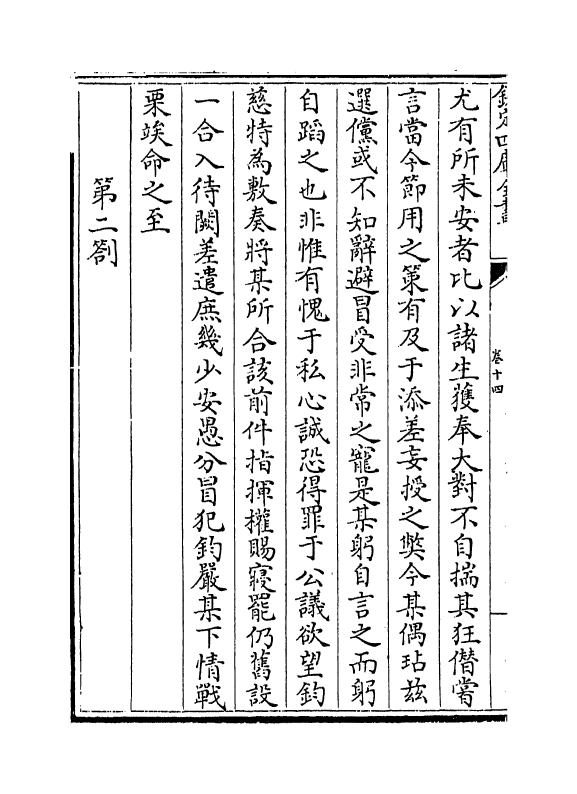 欽定四庫全書
卷十四
尤有所未安者比以諸生獲奉大對不自揣其狂僣嘗
言當今節用之策有及于添差妄授之獘今某偶玷兹
選儻或不知辭避冒受非常之寵是某躬自言之而躬
自蹈之也非惟有愧于私心誠恐得罪于公議欲望鈞
慈特為敷奏將某所合該前件指揮權賜寢罷仍舊設
一合入待闕差遣庶幾少安愚分冒犯鈞嚴某下情戰
栗竢命之至
第二劄